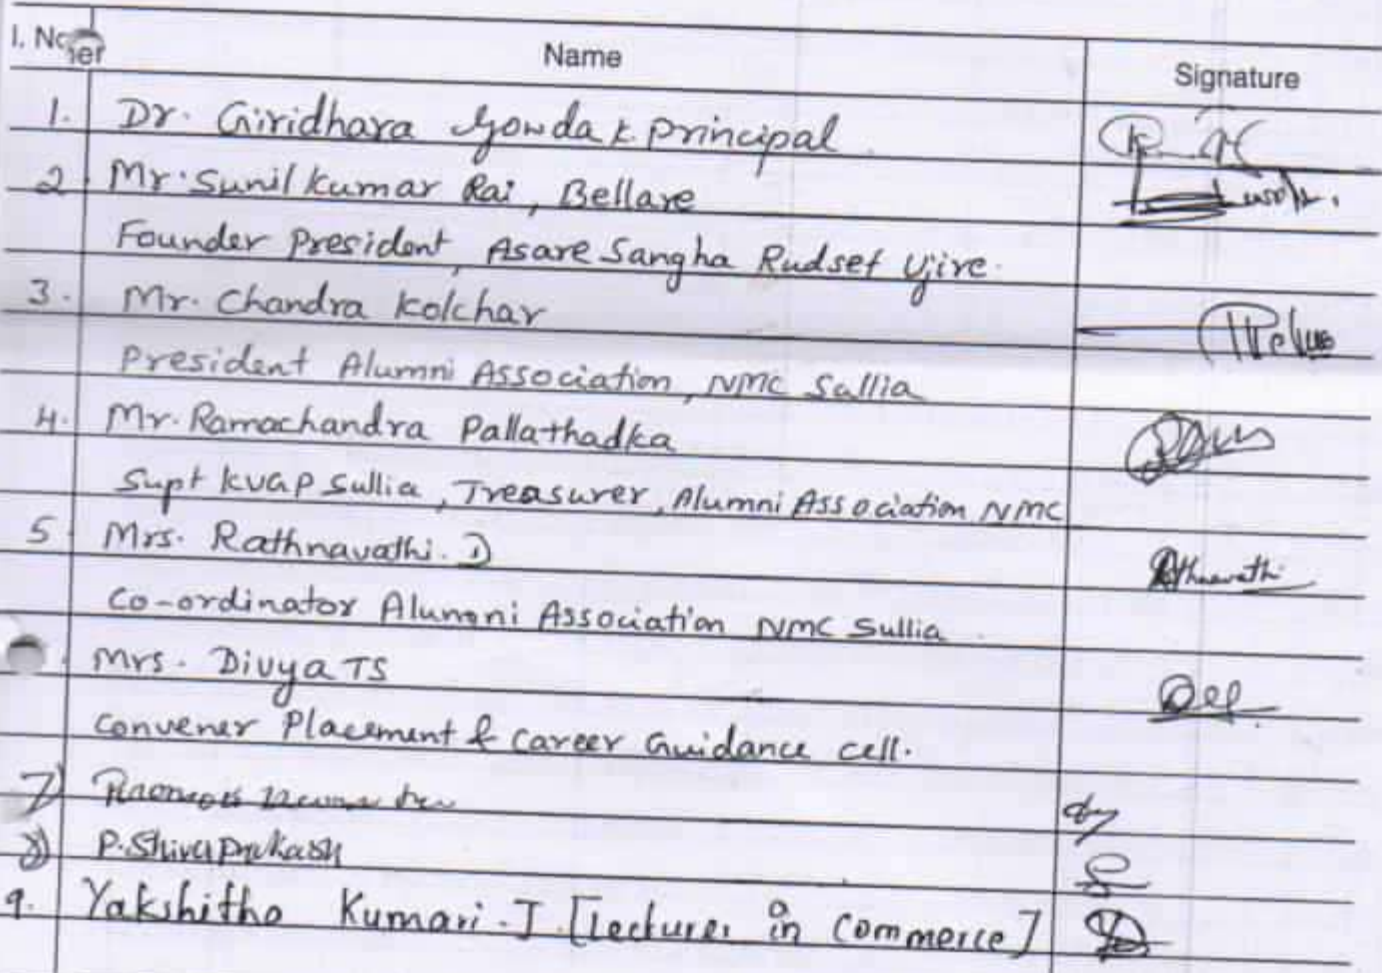 l. No Name Signature
1. Dr. Giridhara Gowda K Principal
2 Mr. Sunil Kumar Rai, Bellare
Founder President, Asare Sangha Rudset Ujire.
3. Mr. Chandra Kolchar
President Alumni Association, NMC Sullia
4. Mr. Ramachandra Pallathadka
Supt KVGP Sullia, Treasurer, Alumni Association NMC
5 Mrs. Rathnavathi. D
Co-ordinator Alumni Association NMC Sullia
Mrs. Divya TS
Convener Placement & Career Guidance cell.
7)
8) P. Shiva Prakash
9. Yakshitha Kumari. J [Lecturer in Commerce]